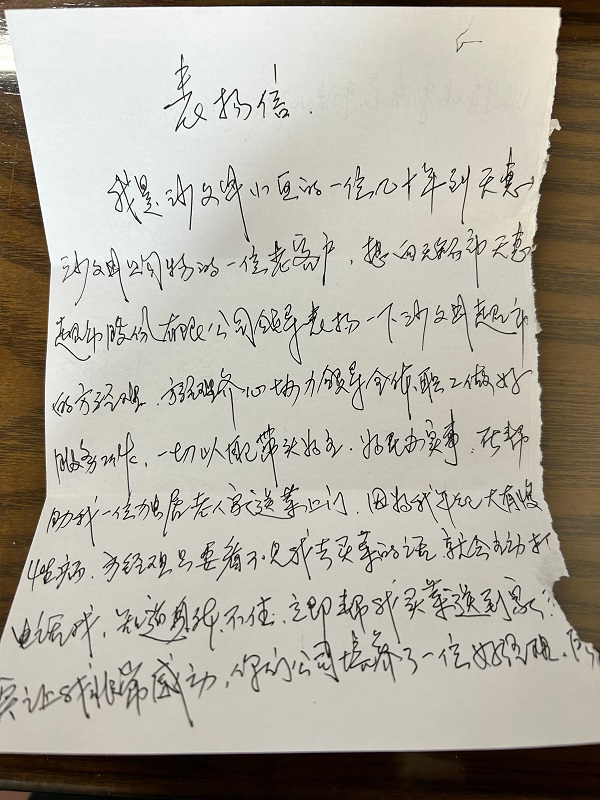 表扬信.
我是沙文井小区的一位几十年到天惠
沙文井公司的一位老客户，想向总部天惠
超市股份有限公司领导表扬一下沙文井超市
的方经理.方经理齐心协力领导全体职工做好
服务工作，一切以 带头 为民办实事.在帮
助我一位独居老人家送菜上门.因为我年纪大有慢
性病.方经理只要看不见我去买菜的话就会主动打
电话我，知道身体不佳.立即帮我买菜送到家
让我非常感动，你们公司培养了一位好经理.